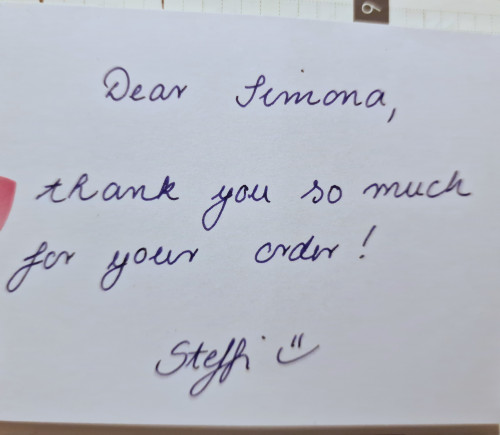 6
Dear Simona,
thank you so much
for your order!
Steffi ü